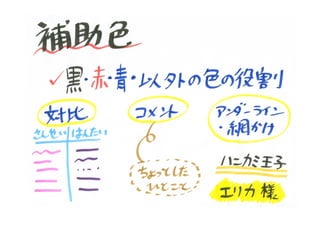 補助色
✓黒・赤・青・以外の色の役割
対比
さんせい はんたい
コメント
ちょっとした
ひとこと
アンダーライン
・網かけ
ハニカミ王子
エリカ様